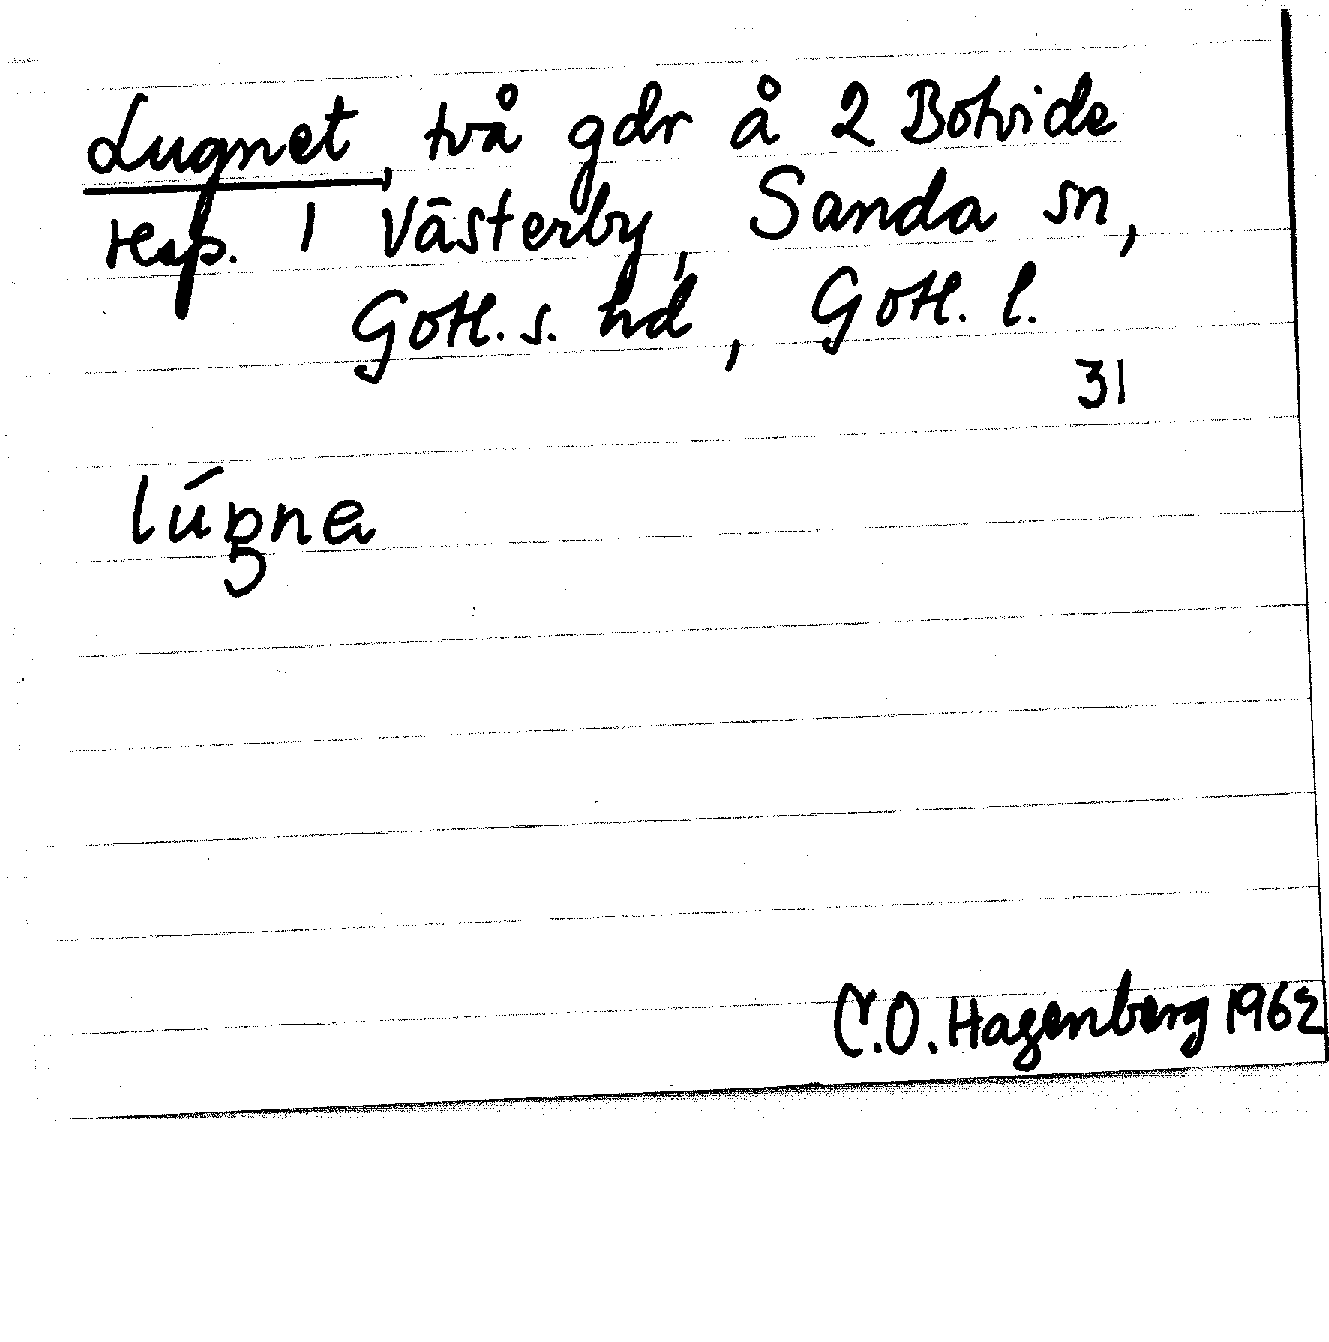 Lugnet, två gdr å 2 Botvide
resp. 1 Västerby, Sanda sn,
Gotl. s. hd, Gotl. l.
31
C.O. Hagenberg 1962